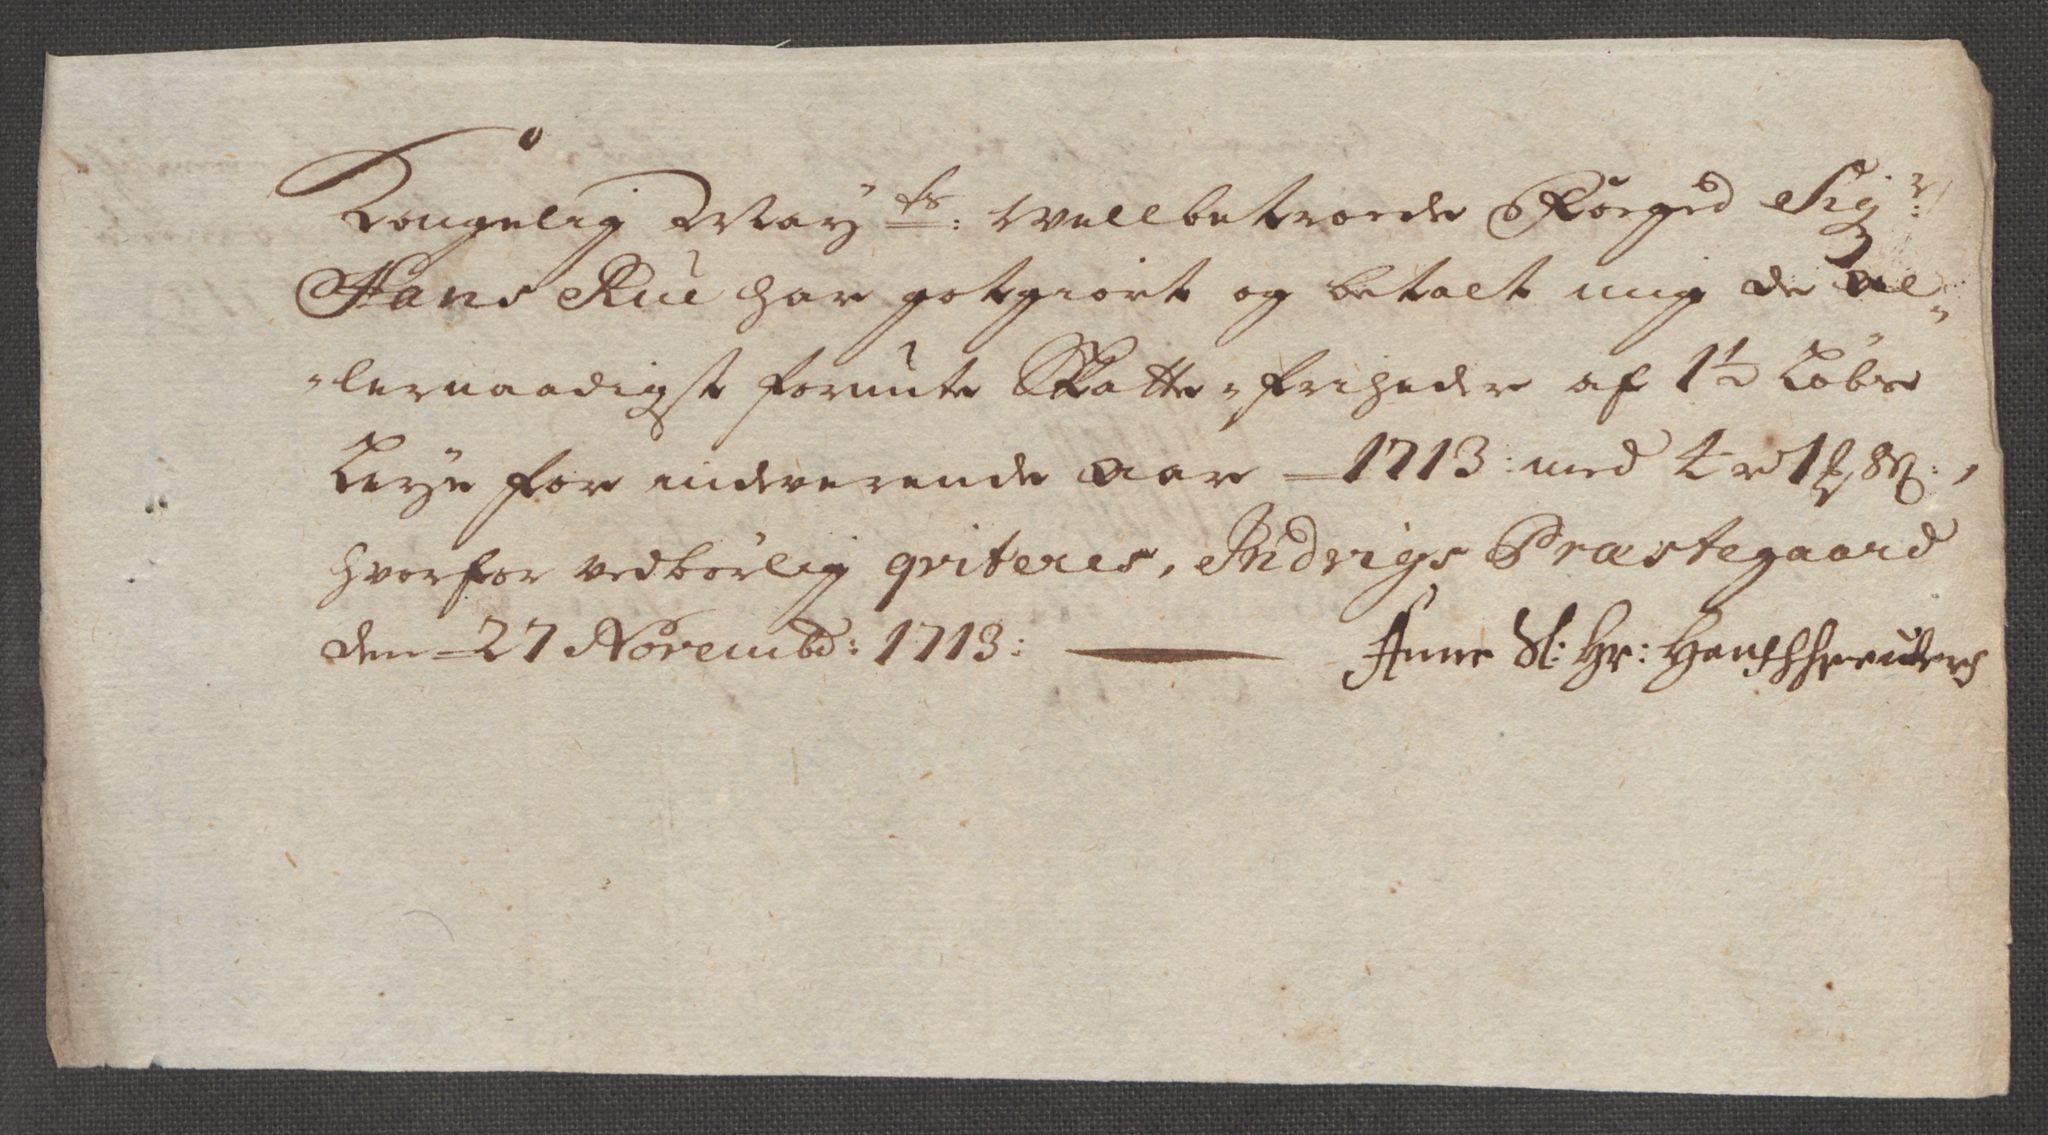 Kongelig May:ts: Wellbetroede Foeged Sig:r
Hans Rue har gotgiort og betalt mig de al„
„lernaadigst forunte Skatte„friheder af 1½ Løbs
Leye for indeverende Aar 1713: med 4 rd 1 ß:,
hvorfor vedbørlig qviteres, Indvigs Præstegaard
den 27 Novembd: 1713:
Anne Sl: Hr: Hans